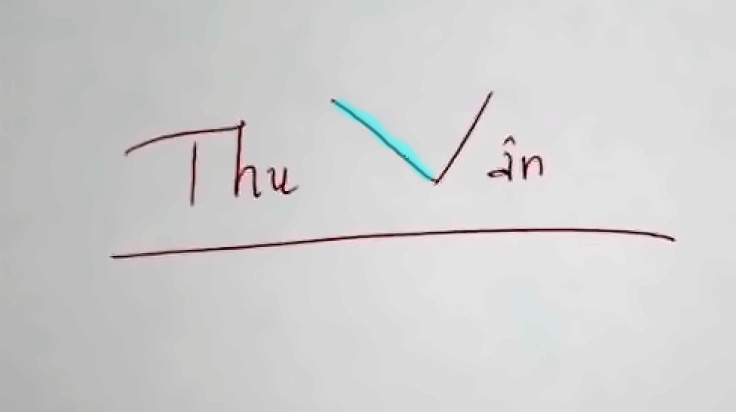 Thu Vân